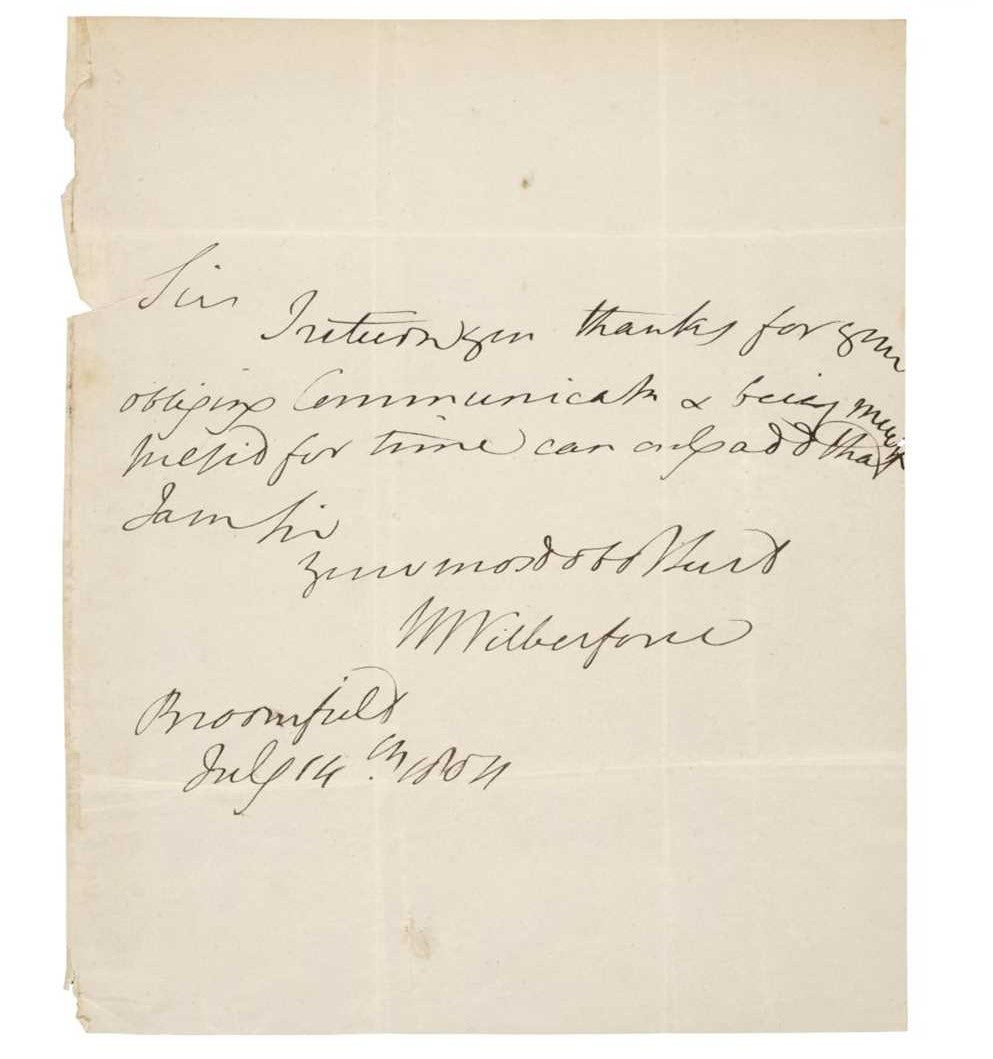 Sir
I return you thanks for your
obliging Communicatn & being much
press'd for time can only add that
I am Sir
Your most obd Hum
W Wilberforce
Broomfield
July 14th. 1804